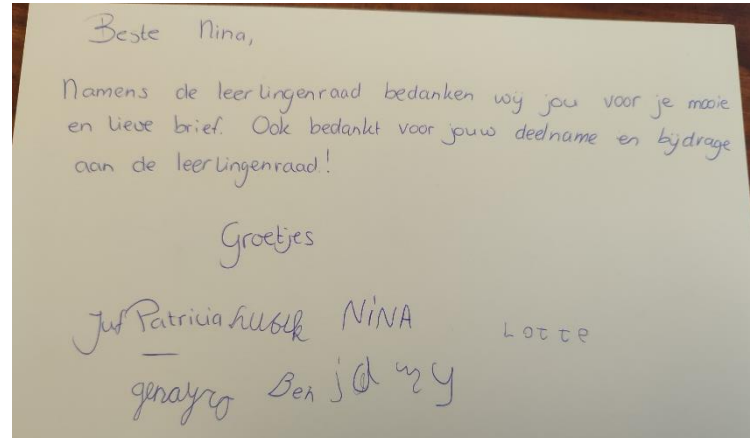 Beste Nina,
Namens de leerlingenraad bedanken wij jou voor je mooie
en lieve brief. Ook bedankt voor jouw deelname en bijdrage
aan de leerlingenraad!
Groetjes
Juf Patricia NiNA Lotte
genayro Ben